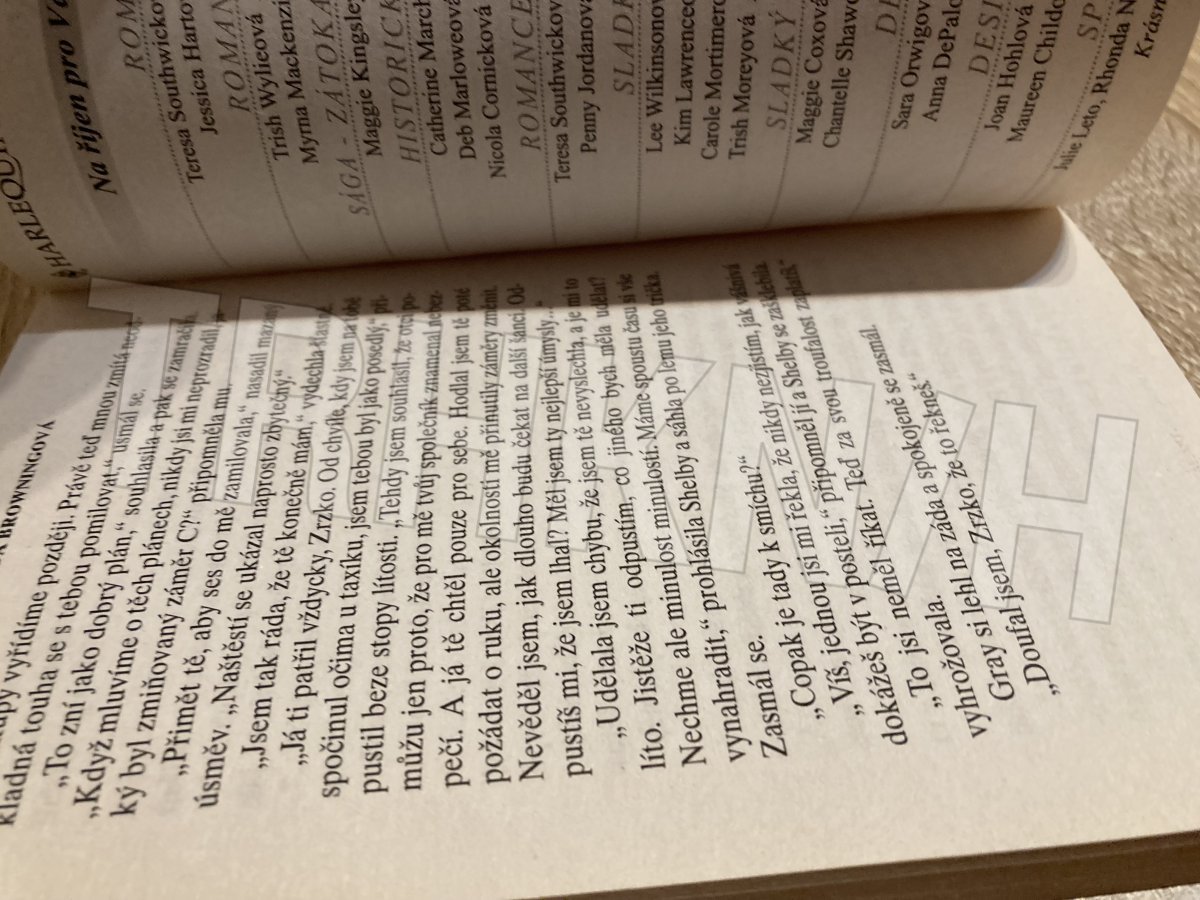 HARLEQUIN
Na říjen pro
Teresa Southwickov
Jessica Hartov
ROMAN
Trish Wylieová
Myrna Mackenzi
SÁGA - ZÁTOKA
Maggie Kingsley
HISTORICK
Catherine March
Deb Marloweová
Nicola Cornicková
ROMANCE
Teresa Southwickov
Penny Jordanova
SLADK
Lee Wilkinsonov
Kim Lawrenceo
Carole Mortimero
Trish Moreyová
SLADKÝ
Maggie Coxová
Chantelle Shaw
Sara Orwigov
Anna DePalo
DESI
Joan Hohlová
Maureen Childo
SP
Julie Leto, Rhonda N
Krásn
BROWNINGOVÁ
vyřídíme později. Právě teď mnou zmítá
kladná touha se s tebou pomilovat,“ usmál se.
„To zní jako dobrý plán,“ souhlasila a pak se zamračila.
„Když mluvíme o těch plánech, nikdy jsi mi neprozradil,
ký byl zmiňovaný záměr C?“ připomněla mu.
„Přimět tě, aby ses do mě zamilovala,“ nasadil
úsměv. „Naštěstí se ukázal naprosto zbytečný.“
„Jsem tak ráda, že tě konečně mám,“ vydechla
„Já ti patřil vždycky, Zrzko. Od chvíle, kdy jsem na tobě
spočinul očima u taxíku, jsem tebou byl jako posedlý,“ při-
pustil beze stopy lítosti. „Tehdy jsem souhlasil, že otci po-
můžu jen proto, že pro mě tvůj společník znamenal nebez-
pečí. A já tě chtěl pouze pro sebe. Hodlal jsem tě poté
požádat o ruku, ale okolnosti mě přinutily záměry změnit.
Nevěděl jsem, jak dlouho budu čekat na další šanci. Od-
pustíš mi, že jsem lhal? Měl jsem ty nejlepší úmysly...“
„Udělala jsem chybu, že jsem tě nevyslechla, a je mi to
líto. Jistěže ti odpustím, co jiného bych měla udělat?
Nechme ale minulost minulostí. Máme spoustu času si vše
vynahradit,“ prohlásila Shelby a sáhla po lemu jeho trička.
Zasmál se.
„Copak je tady k smíchu?“
„Víš, jednou jsi mi řekla, že nikdy nezjistím, jak vášnivá
dokážeš být v posteli,“ připomněl jí a Shelby se zašklebila.
„To jsi neměl říkat. Teď za svou troufalost zaplatíš,“
vyhrožovala.
Gray si lehl na záda a spokojeně se zasmál.
„Doufal jsem, Zrzko, že to řekneš.“